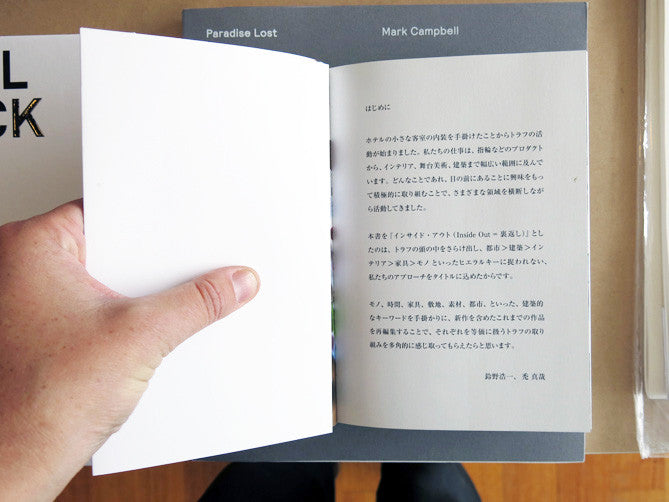 Paradise Lost
Mark Campbell
L
CK
はじめに
ホテルの小さな客室の内装を手掛けたことからトラフの活
動が始まりました。私たちの仕事は、指輪などのプロダクト
から、インテリア、舞台美術、建築まで幅広い範囲に及んで
います。どんなことであれ、目の前にあることに興味をもっ
て積極的に取り組むことで、さまざまな領域を横断しなが
ら活動してきました。
本書を『インサイド・アウト（Inside Out = 裏返し）』とし
たのは、トラフの頭の中をさらけ出し、都市＞建築＞イン
テリア＞家具＞モノ といったヒエラルキーに捉われない、
私たちのアプローチをタイトルに込めたからです。
モノ、時間、家具、敷地、素材、都市、といった、建築的
なキーワードを手掛かりに、新作を含めたこれまでの作品
を再編集することで、それぞれを等価に扱うトラフの取り
組みを多角的に感じ取ってもらえたらと思います。
鈴野浩一、禿 真哉